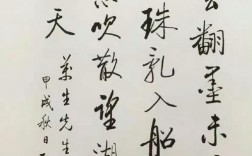 云翻墨未
珠乱入船
忽吹散望湖
天
生先生
甲戌秋日